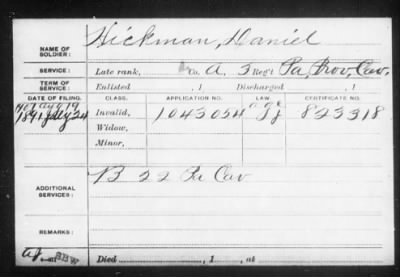 Hickman, Daniel
NAME OF SOLDIER:
SERVICE: Late rank, Co. A, 3 Reg't Pa Prov. Cav.
TERM OF SERVICE: Enlisted , 1 Discharged , 1
DATE OF FILING. CLASS. APPLICATION NO. LAW. CERTIFICATE NO.
1891 24 Invalid, 1043054 823318
Widow,
Minor,
ADDITIONAL SERVICES: B 22 Pa Cav
REMARKS:
Died , 1 , at